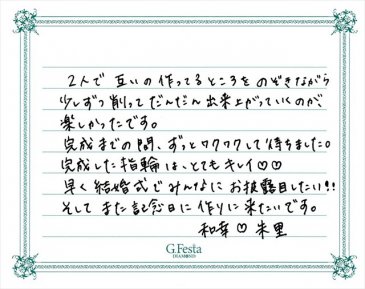 2人で互いの作ってるところをのぞきながら
少しずつ削ってだんだん出来上がっていくのが、
楽しかったです。
完成までの間、ずっとワクワクして待ちました。
完成した指輪は、とてもキレイ♡♡
早く結婚式でみんなにお披露目したい!!
そしてまた記念日に作りに来たいです。
和幸♡朱里
G.Festa
DIAMOND